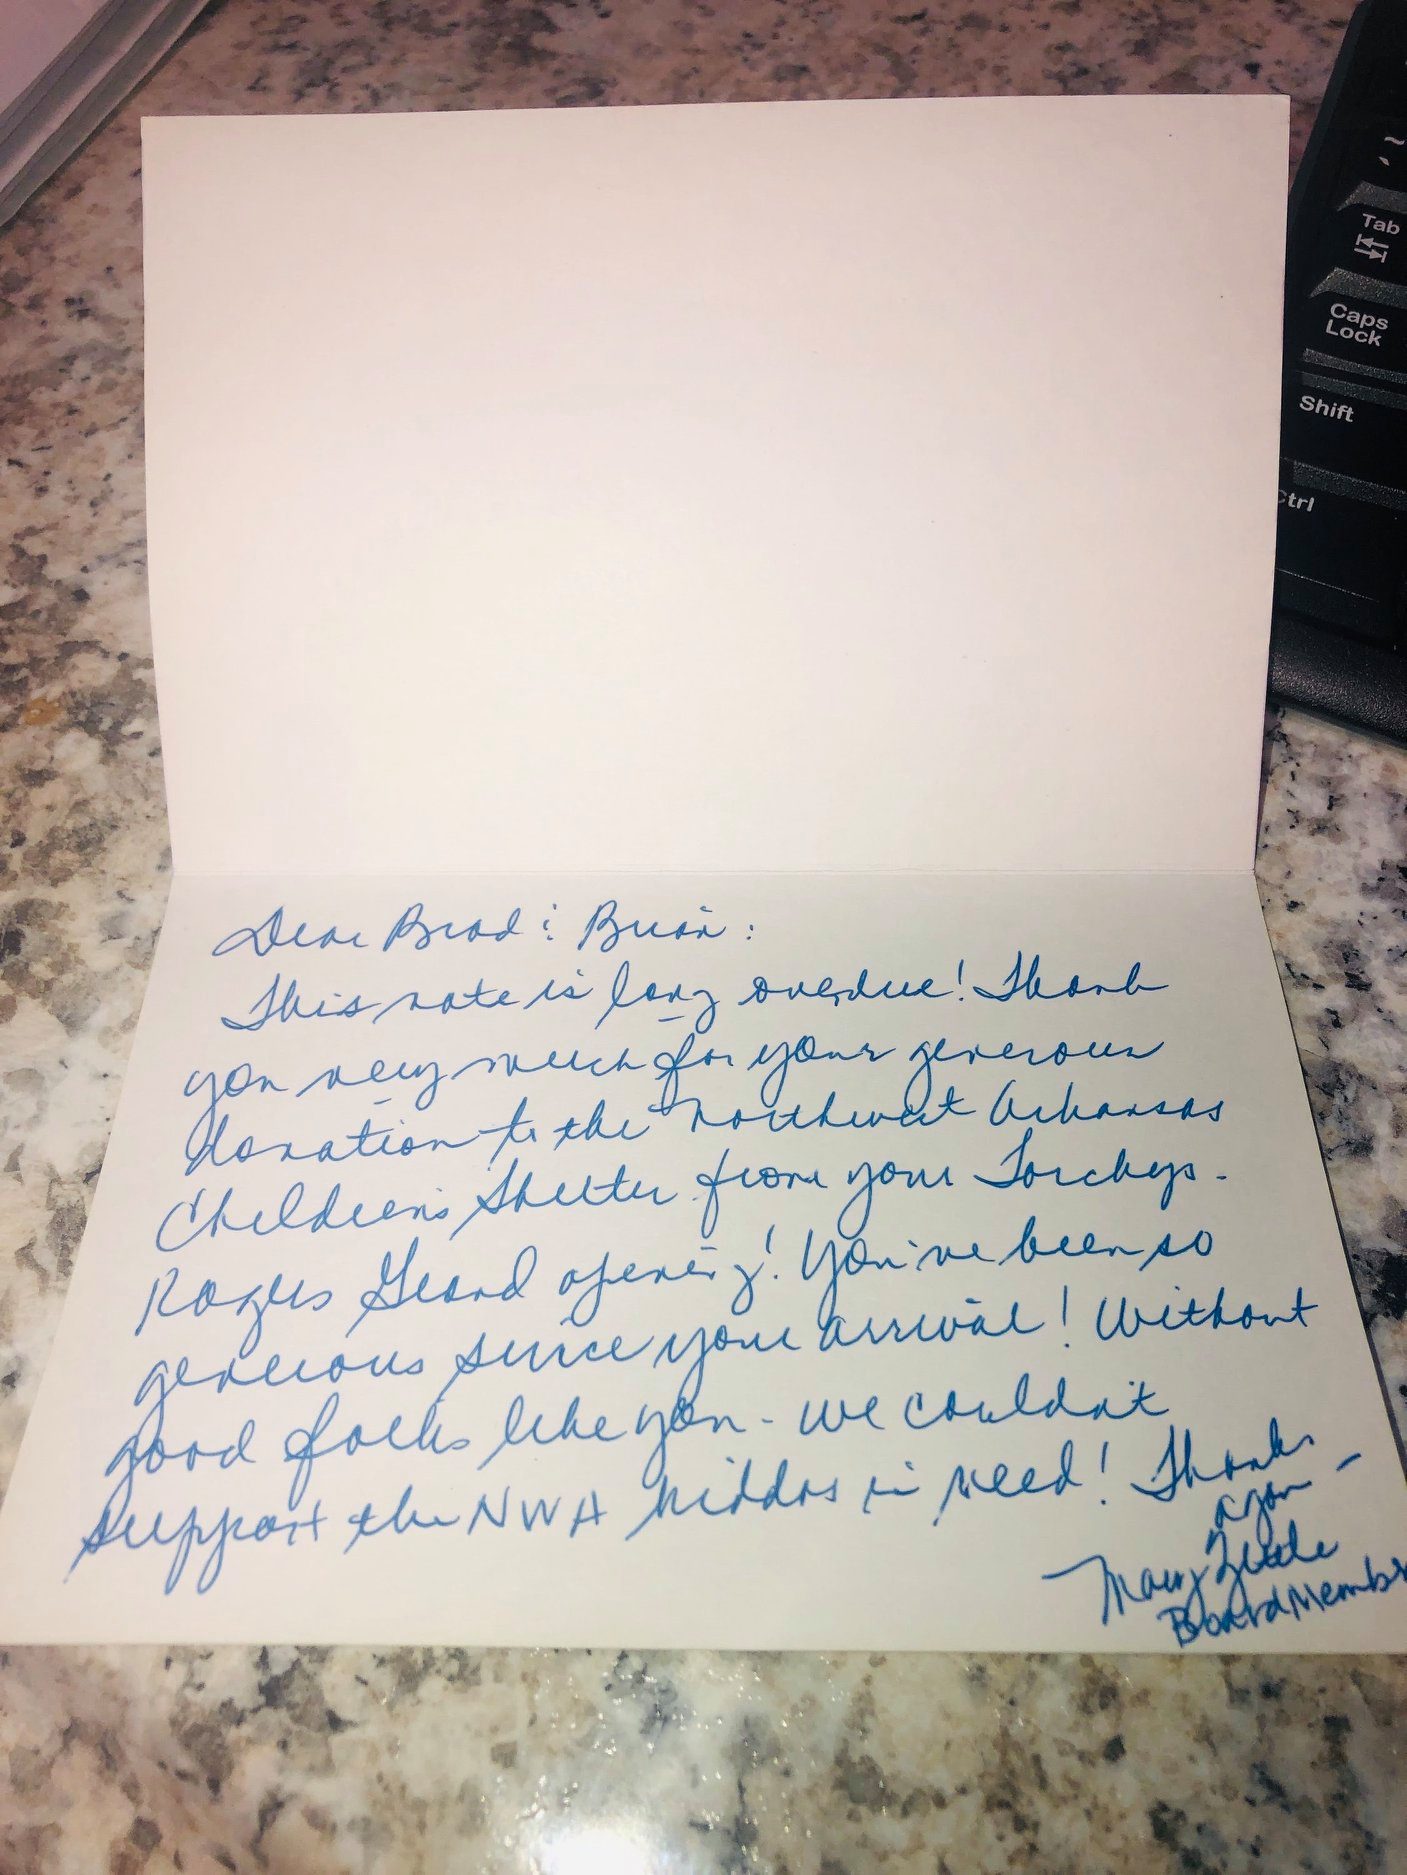 Tab
Caps
Lock
Shift
Ctrl
Dear Brad & Brian:
This note is long overdue! Thank
you very much for your generous
donation to the Northwest Arkansas
Children's Shelter from your Torchys -
Rogers Grand opening! You've been so
generous since your arrival! Without
good folks like you - we couldn't
support the NWA kiddos in need! Thank
you -
Mary
Board Member